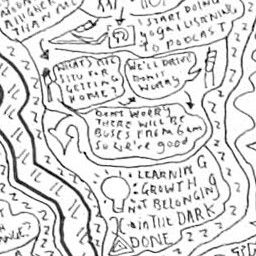 THAN ME
I START DOING
YOGA LISTENING
TO PODCAST
WHAT'S THE
SITU FOR
GETTING
HOME?
WE'LL DRIVE
DON'T
WORRY
DON'T WORRY
THERE WILL BE
BUSES FROM 6am
SO WE'RE good
LEARNING
GROWTH
NOT BELONGING
IN THE DARK
DONE